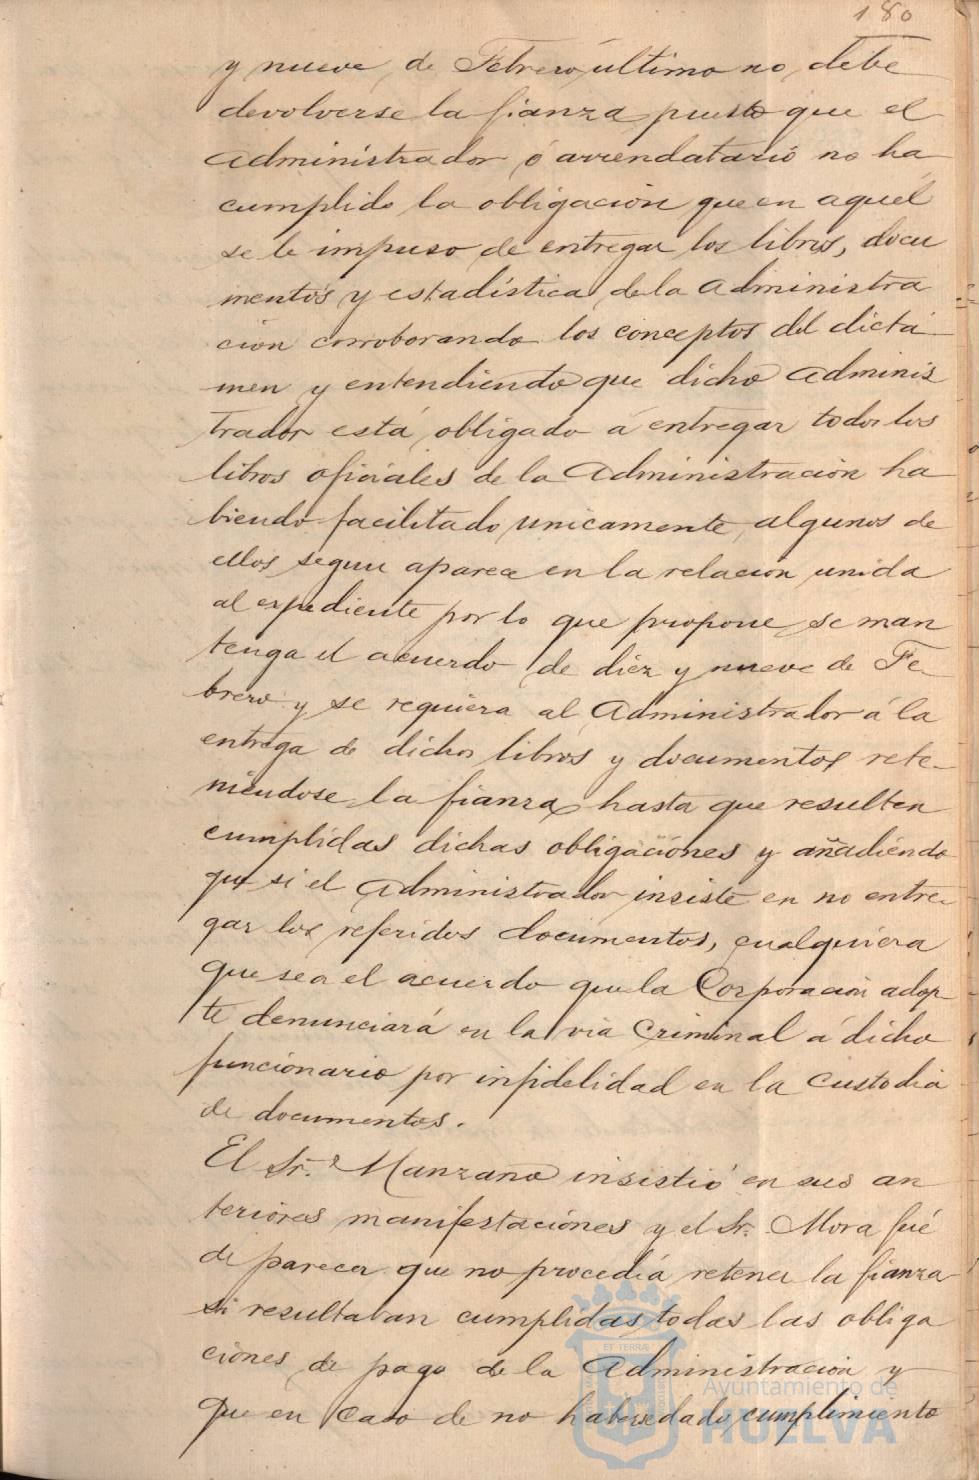 180
y nueve de Febrero último no debe
devolverse la fianza puesto que el
Administrador ó arrendatario no ha
cumplido la obligación que en aquel
se le impuso de entregar los libros, docu
mentos y estadística de la Administra
ción corroborando los conceptos del dictá
men y entendiendo que dicho Adminis
trador está obligado á entregar todos los
libros oficiales de la Administración ha
biendo facilitado unicamente algunos de
ellos segun aparece en la relación unida
al expediente por lo que propone se man
tenga el acuerdo de diez y nueve de Fe-
brero y se requiera al Administrador á la
entrega de dichos libros y documentos rete-
niéndose la fianza hasta que resulten
cumplidas dichas obligaciones y añadiendo
que si el Administrador insiste en no entre-
gar los referidos documentos, cualquiera
que sea el acuerdo que la Corporación adop-
te denunciará en la via Criminal á dicho
funcionario por infidelidad en la custodia
de documentos.
El Sr. Manzano insistió en sus an
teriores manifestaciones y el Sr. Mora fué
de parecer que no procedía retener la fianza
si resultaban cumplidas todas las obliga
ciones de pago de la Administración y
que en caso de no haberse dado cumplimiento
ET TERRÆ
Ayuntamiento de
HUELVA